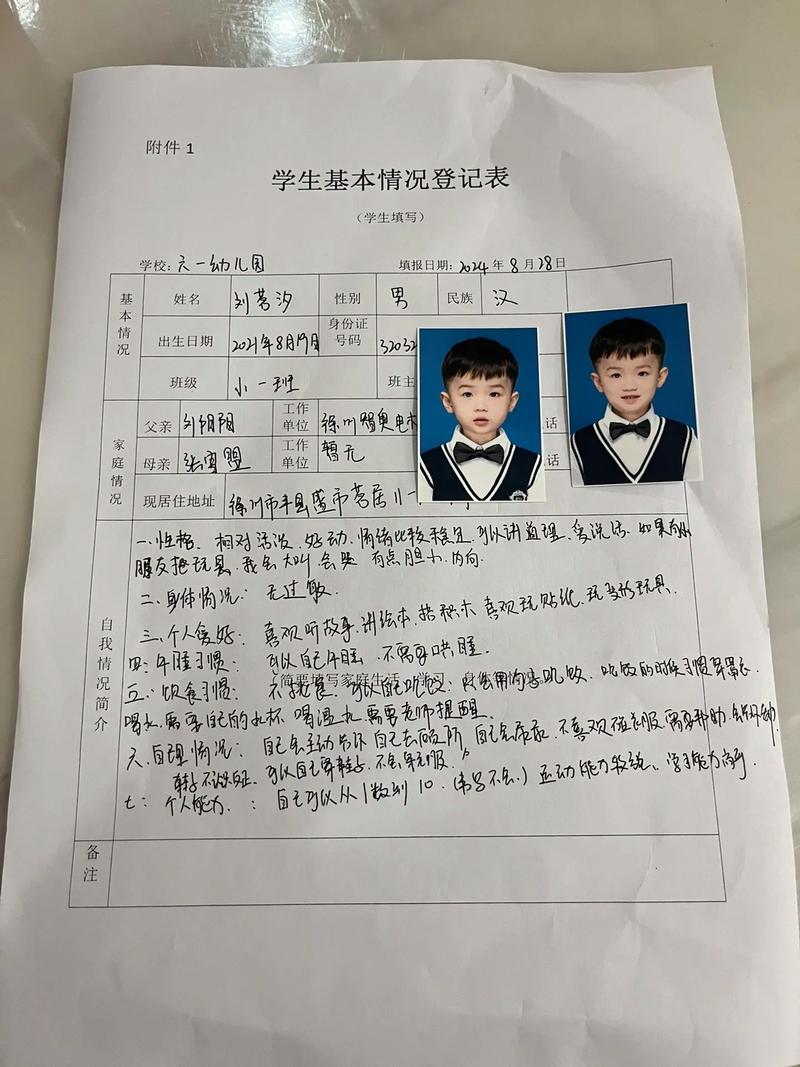 附件 1
学生基本情况登记表
(学生填写)
学校: 六一幼儿园 填报日期: 2024 年 8 月 28 日
基本情况 姓名 刘茗汐 性别 男 民族 汉
出生日期 2021年8月19日 身份证号码 32032
班级 小一班 班主
家庭情况 父亲 刘阳阳 工作单位 徐州 话
母亲 张雪盟 工作单位 暂无 话
现居住地址 徐州市丰县
自我情况简介
一、性格、相对活泼、好动、情绪比较稳定、可以讲道理、爱说话、如果有小
朋友抢玩具、我会大叫、会哭 有点胆小、内向.
二、身体情况: 无过敏.
三、个人爱好: 喜欢听故事、讲绘本、搭积木 喜欢玩贴纸、玩 玩具.
四: 午睡习惯: 可以自己午睡、不需要哄睡.
简要填写家庭生活、学习、身体等情况。
五: 饮食习惯: 不挑食、可以自己吃饭、只会用勺子吃饭、吃饭的时候习惯穿罩衣.
喝水、需要自己的水杯 喝温水、需要老师提醒.
六、自理情况: 自己会主动告诉 自己去厕所 自己会 不喜欢 衣服、需要帮助、
鞋子 可以自己穿鞋子、不会穿衣服.
七: 个人能力: 自己可以从1数到10. (书写不会.) 运动能力 学习能力
备注